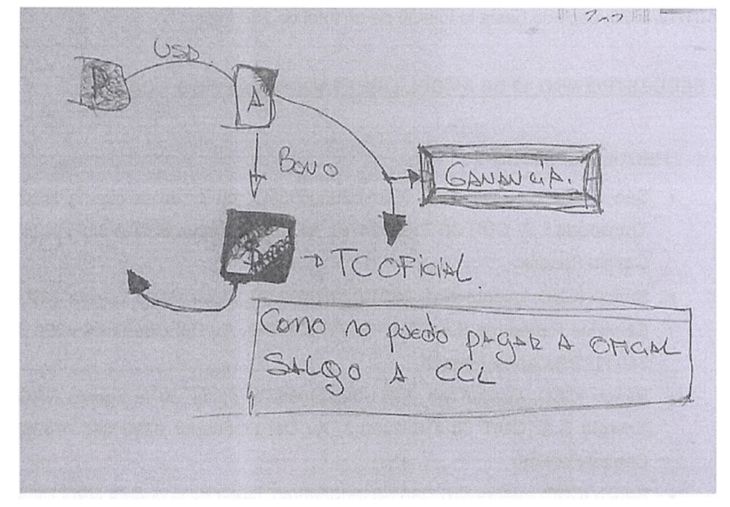 USD
A
BONO
GANANCIA.
→ TC OFICIAL.
COMO NO PUEDO PAGAR A OFICIAL
SALGO A CCL